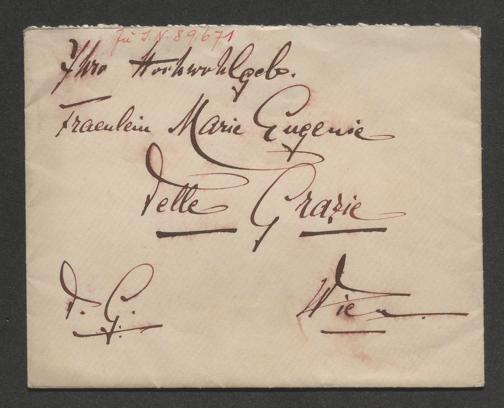 Zu I.N. 89.671
Ihro Hochwohlgeb.
Fraeulein Marie Eugenie
delle Grazie
d. G.
Wien.